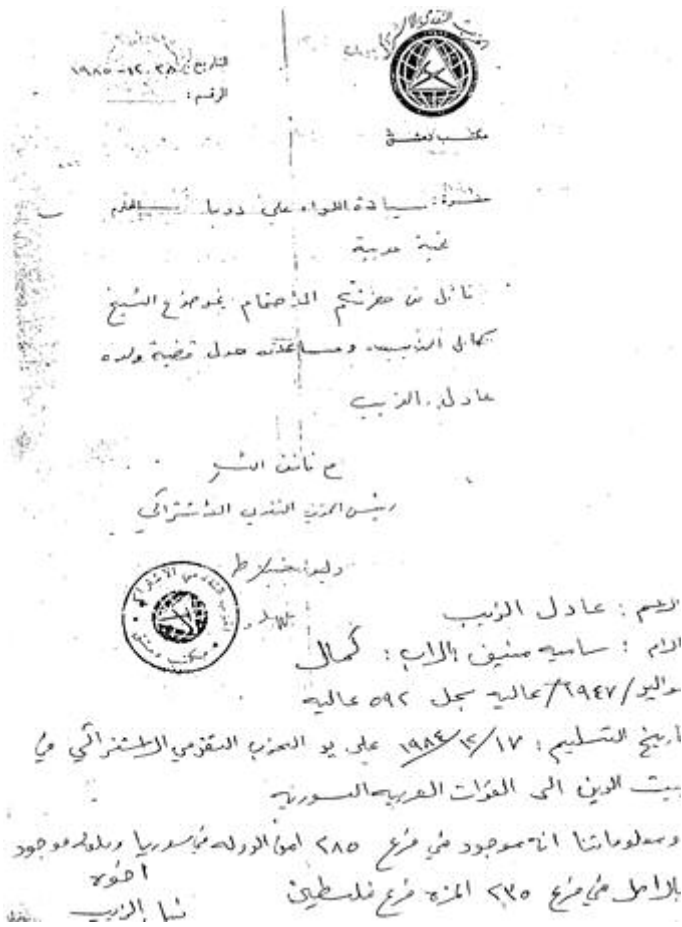 الحزب التقدمي الاشتراكي
التاريخ: ٢٨-١٢-١٩٨٥
الرقم:
مكتب دمشق
حضرة: سيادة اللواء علي دوبا المحترم
تحية عربية
نأمل من حضرتكم الاهتمام بموضوع الشيخ
كمال الزيب، ومساعدته حول قضية ولده
عادل الزيب
رئيس الحزب التقدمي الاشتراكي
وليد جنبلاط
الحزب التقدمي الاشتراكي
مكتب دمشق
الاسم: عادل الزيب
الام: ساميه منيف الاب: كمال
مواليد/١٩٤٧/عاليه سجل ٥٩٢ عاليه
تاريخ التسليم: على يد الحزب التقدمي الاشتراكي في
بيت الدين الى القوات العربيه السوريه
ومعلوماتنا انه موجود في فرع ٢٨٥ امن الدوله في سوريا موجود
بالداخل في فرع ٢٣٥ المزه فرع فلسطين
اخوه
الزيب